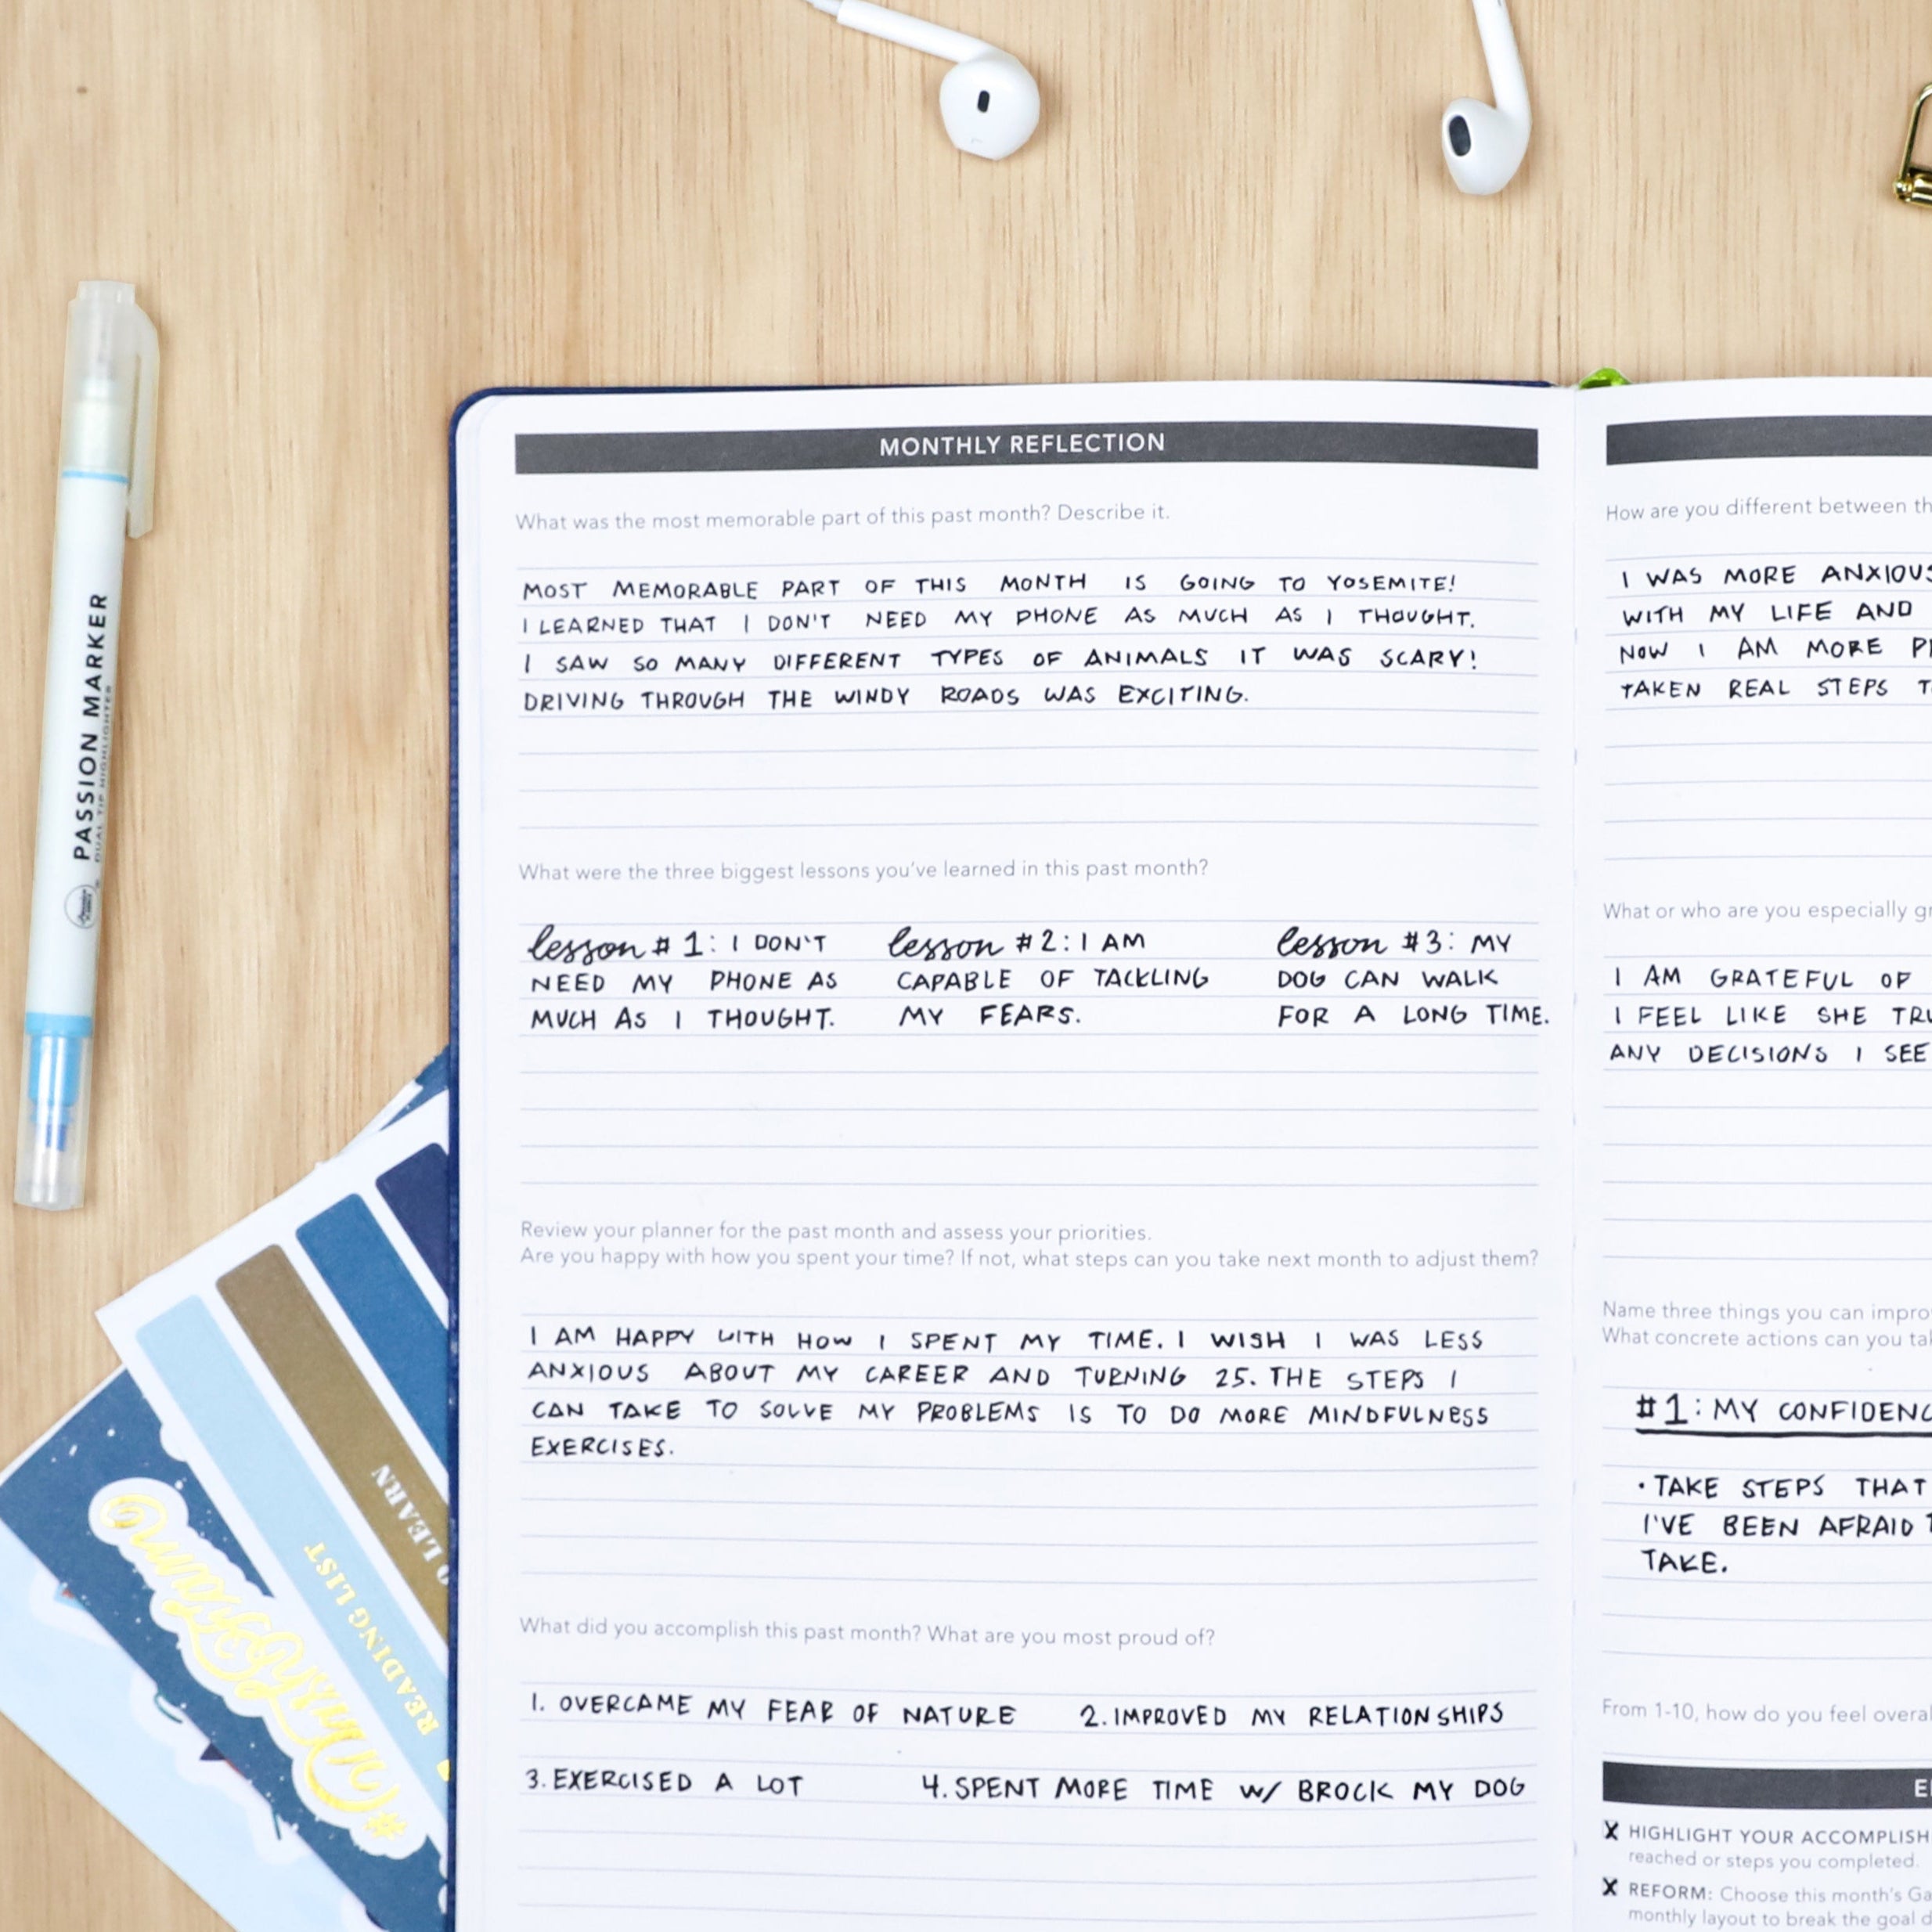 PASSION MARKER
DUAL TIP HIGHLIGHTER
MONTHLY REFLECTION
What was the most memorable part of this past month? Describe it.
MOST MEMORABLE PART OF THIS MONTH IS GOING TO YOSEMITE!
I LEARNED THAT I DON'T NEED MY PHONE AS MUCH AS I THOUGHT.
I SAW SO MANY DIFFERENT TYPES OF ANIMALS IT WAS SCARY!
DRIVING THROUGH THE WINDY ROADS WAS EXCITING.
What were the three biggest lessons you've learned in this past month?
lesson #1: I DON'T
NEED MY PHONE AS
MUCH AS I THOUGHT.
lesson #2: I AM
CAPABLE OF TACKLING
MY FEARS.
lesson #3: MY
DOG CAN WALK
FOR A LONG TIME.
Review your planner for the past month and assess your priorities.
Are you happy with how you spent your time? If not, what steps can you take next month to adjust them?
I AM HAPPY WITH HOW I SPENT MY TIME. I WISH I WAS LESS
ANXIOUS ABOUT MY CAREER AND TURNING 25. THE STEPS I
CAN TAKE TO SOLVE MY PROBLEMS IS TO DO MORE MINDFULNESS
EXERCISES.
What did you accomplish this past month? What are you most proud of?
1. OVERCAME MY FEAR OF NATURE 2. IMPROVED MY RELATIONSHIPS
3. EXERCISED A LOT 4. SPENT MORE TIME W/ BROCK MY DOG
How are you different between
I WAS MORE ANXIOUS
WITH MY LIFE AND
NOW I AM MORE
TAKEN REAL STEPS
What or who are you especially
I AM GRATEFUL OF
I FEEL LIKE SHE
ANY DECISIONS I SEE
Name three things you can
What concrete actions can you
#1: MY
• TAKE STEPS THAT
I'VE BEEN AFRAID
TAKE.
From 1-10, how do you feel
HIGHLIGHT YOUR
reached or steps you completed.
REFORM: Choose this month's
monthly layout to break the goal
LEARN
READING LIST